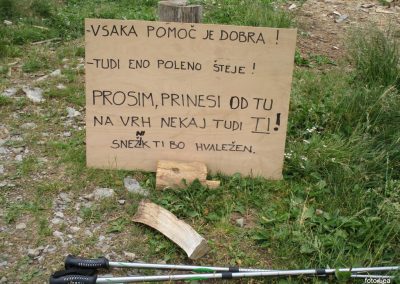 -VSAKA POMOČ JE DOBRA !
-TUDI ENO POLENO ŠTEJE !
PROSIM, PRINESI OD TU
NA VRH NEKAJ TUDI TI!
SNEŽNIK TI BO HVALEŽEN.